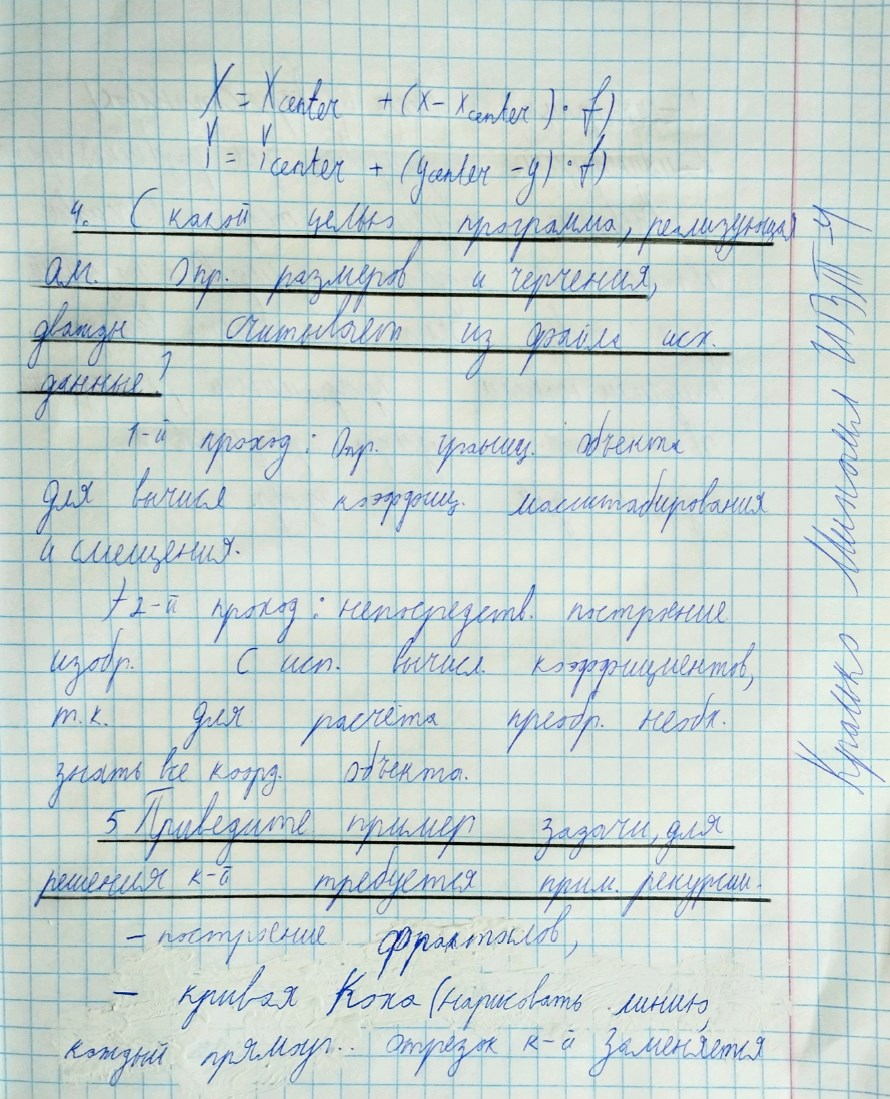 X = Xcenter + (x - xcenter) · f)
Y = Ycenter + (ycenter - y) · f)
4. С какой целью программа, реализующая
ал. опр. размеров и черчения,
дважды считывает из файла исх.
данные?
1-й проход: Опр. границ. объекта
для вычисл коэффиц. масштабирования
и смещения.
2-й проход: непосредств. построение
изобр. с исп. вычисл. коэффициентов,
т.к. для расчёта преобр. необх.
знать все коорд. объекта.
5 Приведите пример задачи, для
решения к-й требуется прим. рекурсии.
- построение фракталов,
- кривая Коха (нарисовать линию,
каждый прямоуг.. отрезок к-й заменяется
Михаил ИВТ-4